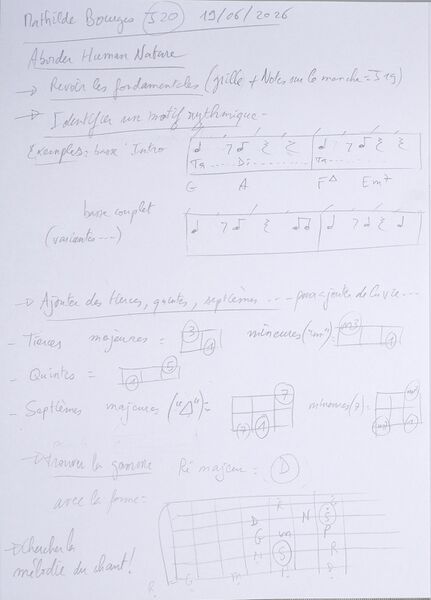 Mathilde Bourges J20 19/06/2026
Aborder Human Nature
→ Revoir les fondamentales (grille + Notes sur le manche = J19)
→ Identifier un motif rythmique -
Exemples: basse Intro
Ta Di Ta
G A F Δ Em7
basse couplet
(variantes ---)
→ Ajouter des tierces, quintes, septièmes --- pour ajouter de la vie ---
- Tierces majeures = 3 1 mineures ("m") = m3 1
- Quintes = 1 5
- Septièmes majeures ("Δ") = 7 (7) 1 mineures (7) =
→ trouver la gamme Ré majeur = D
avec la forme =
→ Chercher la
mélodie du chant!